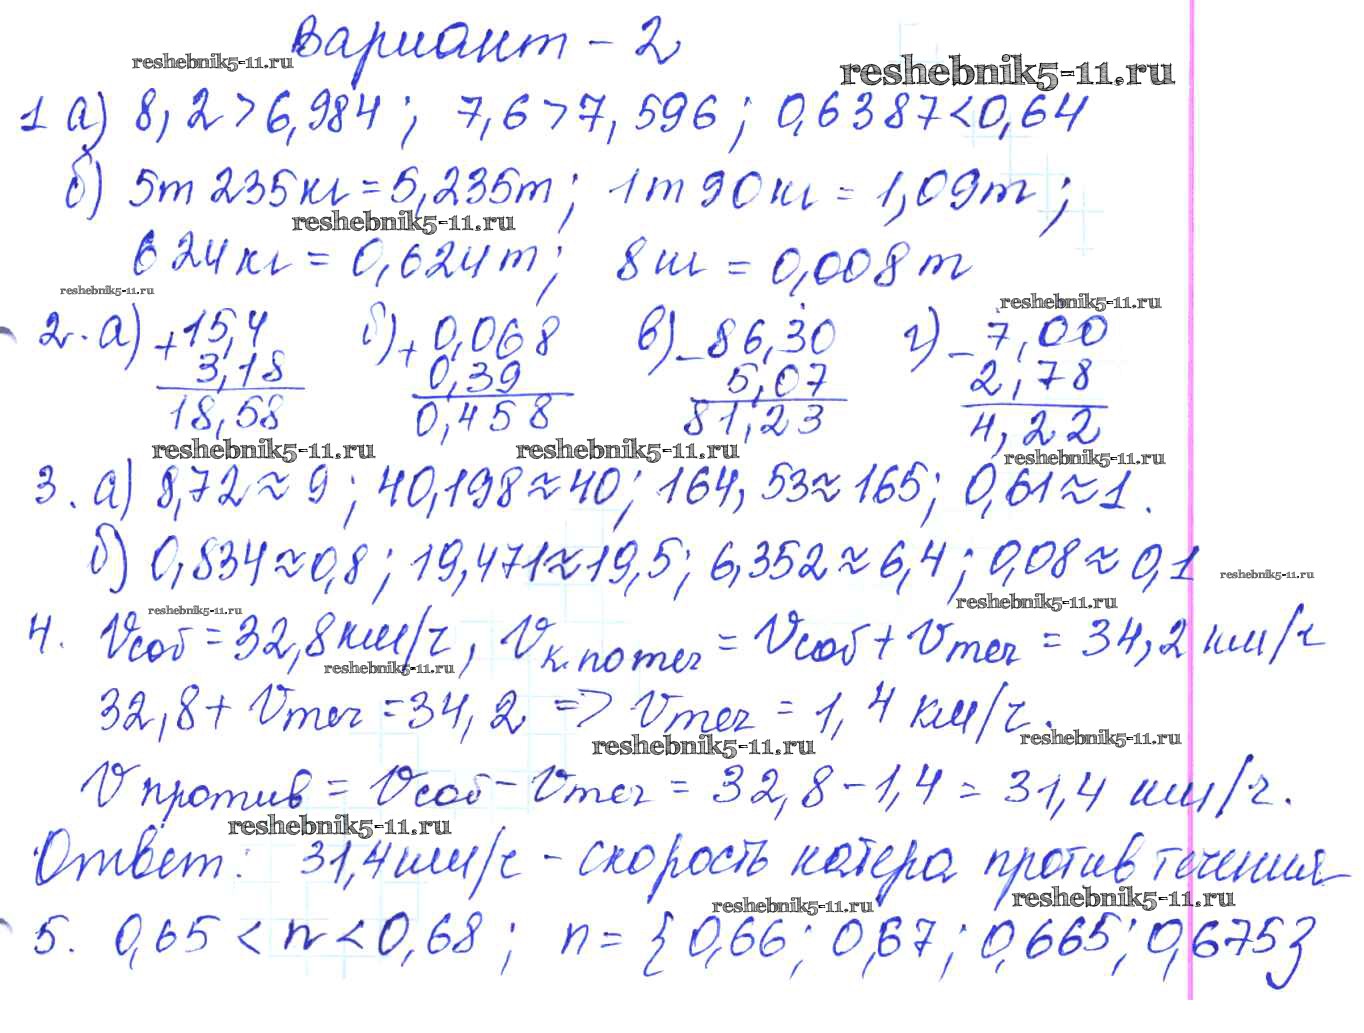 Вариант - 2
reshebnik5-11.ru
reshebnik5-11.ru
1 а) 8,2 > 6,984; 7,6 > 7,596; 0,6387 < 0,64
б) 5т 235кг = 5,235т; 1т 90кг = 1,09т;
reshebnik5-11.ru
624кг = 0,624т; 8кг = 0,008т
reshebnik5-11.ru
reshebnik5-11.ru
2. а) +15,4 б) + 0,068 в) - 86,30 г) - 7,00
3,18 0,39 5,07 2,78
18,58 0,458 81,23 4,22
reshebnik5-11.ru reshebnik5-11.ru reshebnik5-11.ru
3. а) 8,72 ≈ 9; 40,198 ≈ 40; 164,53 ≈ 165; 0,61 ≈ 1.
б) 0,834 ≈ 0,8; 19,471 ≈ 19,5; 6,352 ≈ 6,4; 0,08 ≈ 0,1
reshebnik5-11.ru
reshebnik5-11.ru reshebnik5-11.ru
4. Vсоб = 32,8км/ч, Vк.по теч = Vсоб + Vтеч = 34,2 км/ч
reshebnik5-11.ru
32,8 + Vтеч = 34,2 => Vтеч = 1,4 км/ч.
reshebnik5-11.ru reshebnik5-11.ru
Vпротив = Vсоб - Vтеч = 32,8 - 1,4 = 31,4 км/ч.
reshebnik5-11.ru
Ответ: 31,4км/ч - скорость катера против течения
reshebnik5-11.ru reshebnik5-11.ru
5. 0,65 < n < 0,68; n = {0,66; 0,67; 0,665; 0,675}